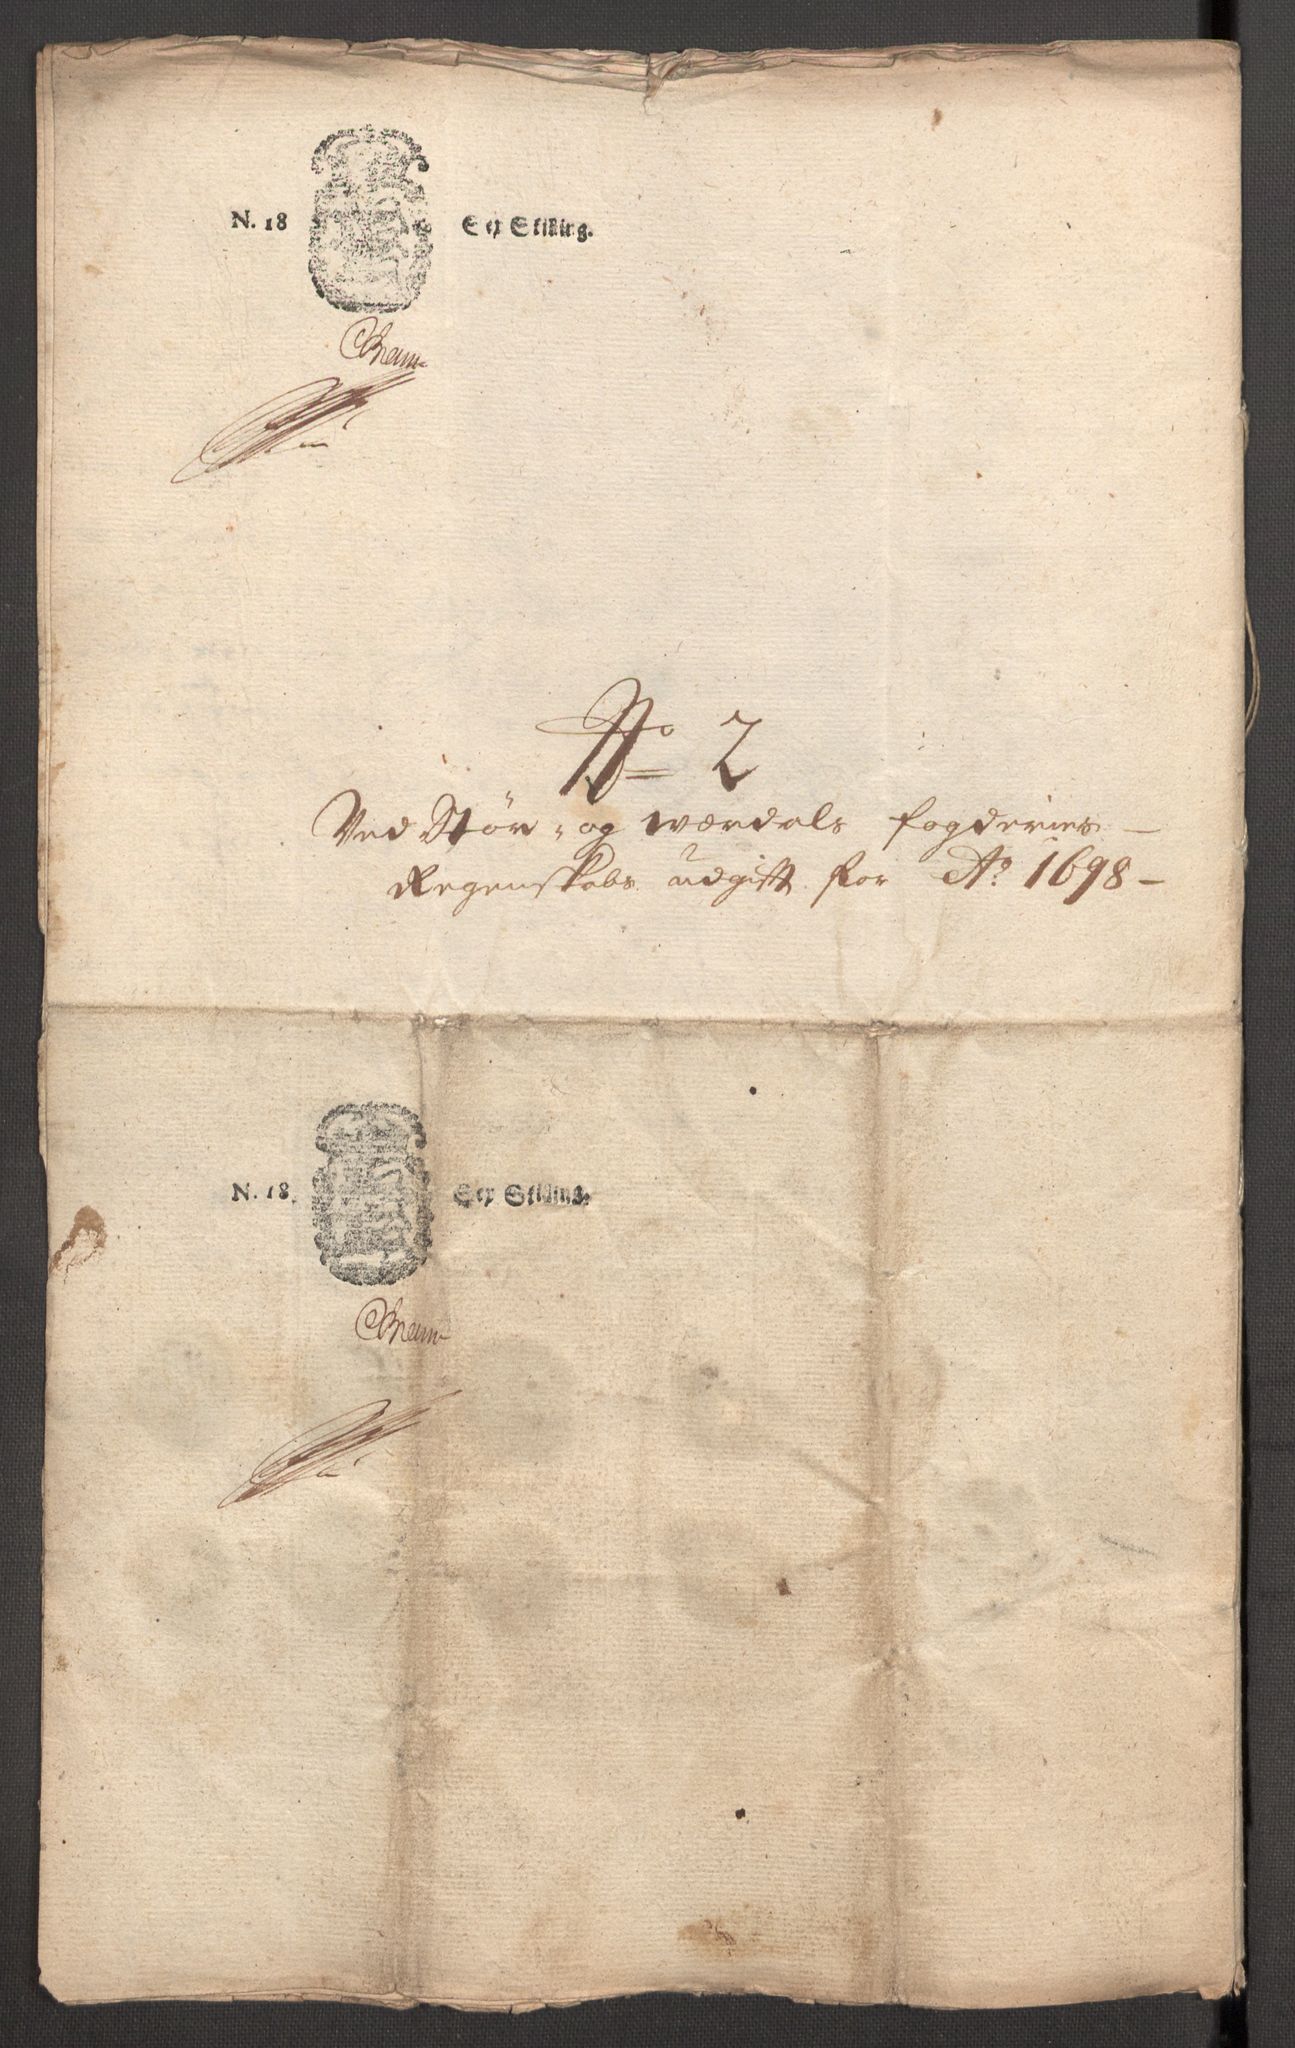 N. 18 Sex Skilling.
No 2
Ved Stør- og Værdals fogderies
Regenskabs udgift for Ao 1698
N. 18. Sex Skilling.